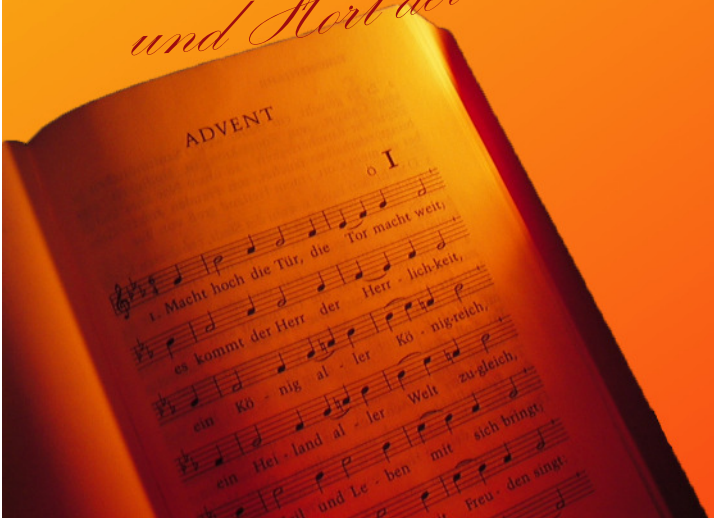 und Hort der
ADVENT
ö 1
1. Macht hoch die Tür, die Tor macht weit,
es kommt der Herr der Herr - lich-keit,
ein Kö - nig al - ler Kö - nig-reich,
ein Hei - land al - ler Welt zu-gleich,
Heil und Le - ben mit sich bringt;
Freu - den singt: